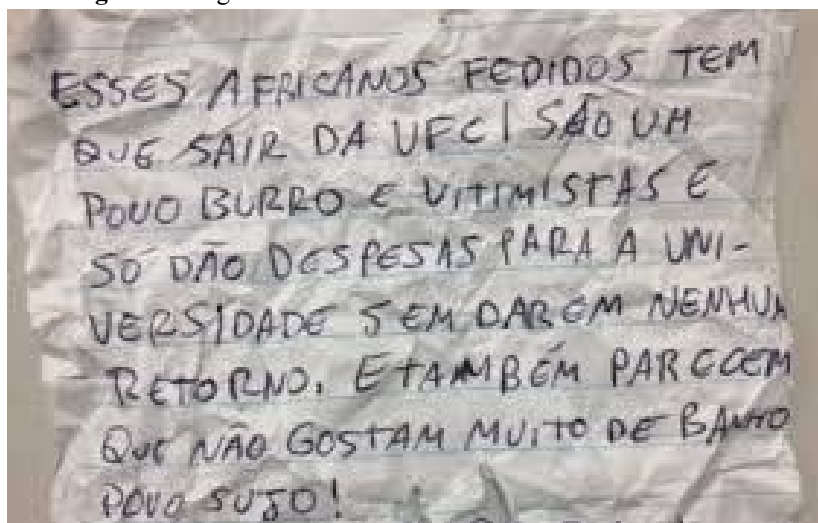 ESSES AFRICANOS FEDIDOS TEM
QUE SAIR DA UFC! SÃO UM
POVO BURRO E VITIMISTAS E
SÓ DÃO DESPESAS PARA A UNI-
VERSIDADE SEM DAREM NENHUM
RETORNO. E TAMBÉM PARECEM
QUE NÃO GOSTAM MUITO DE BANHO
POVO SUJO!